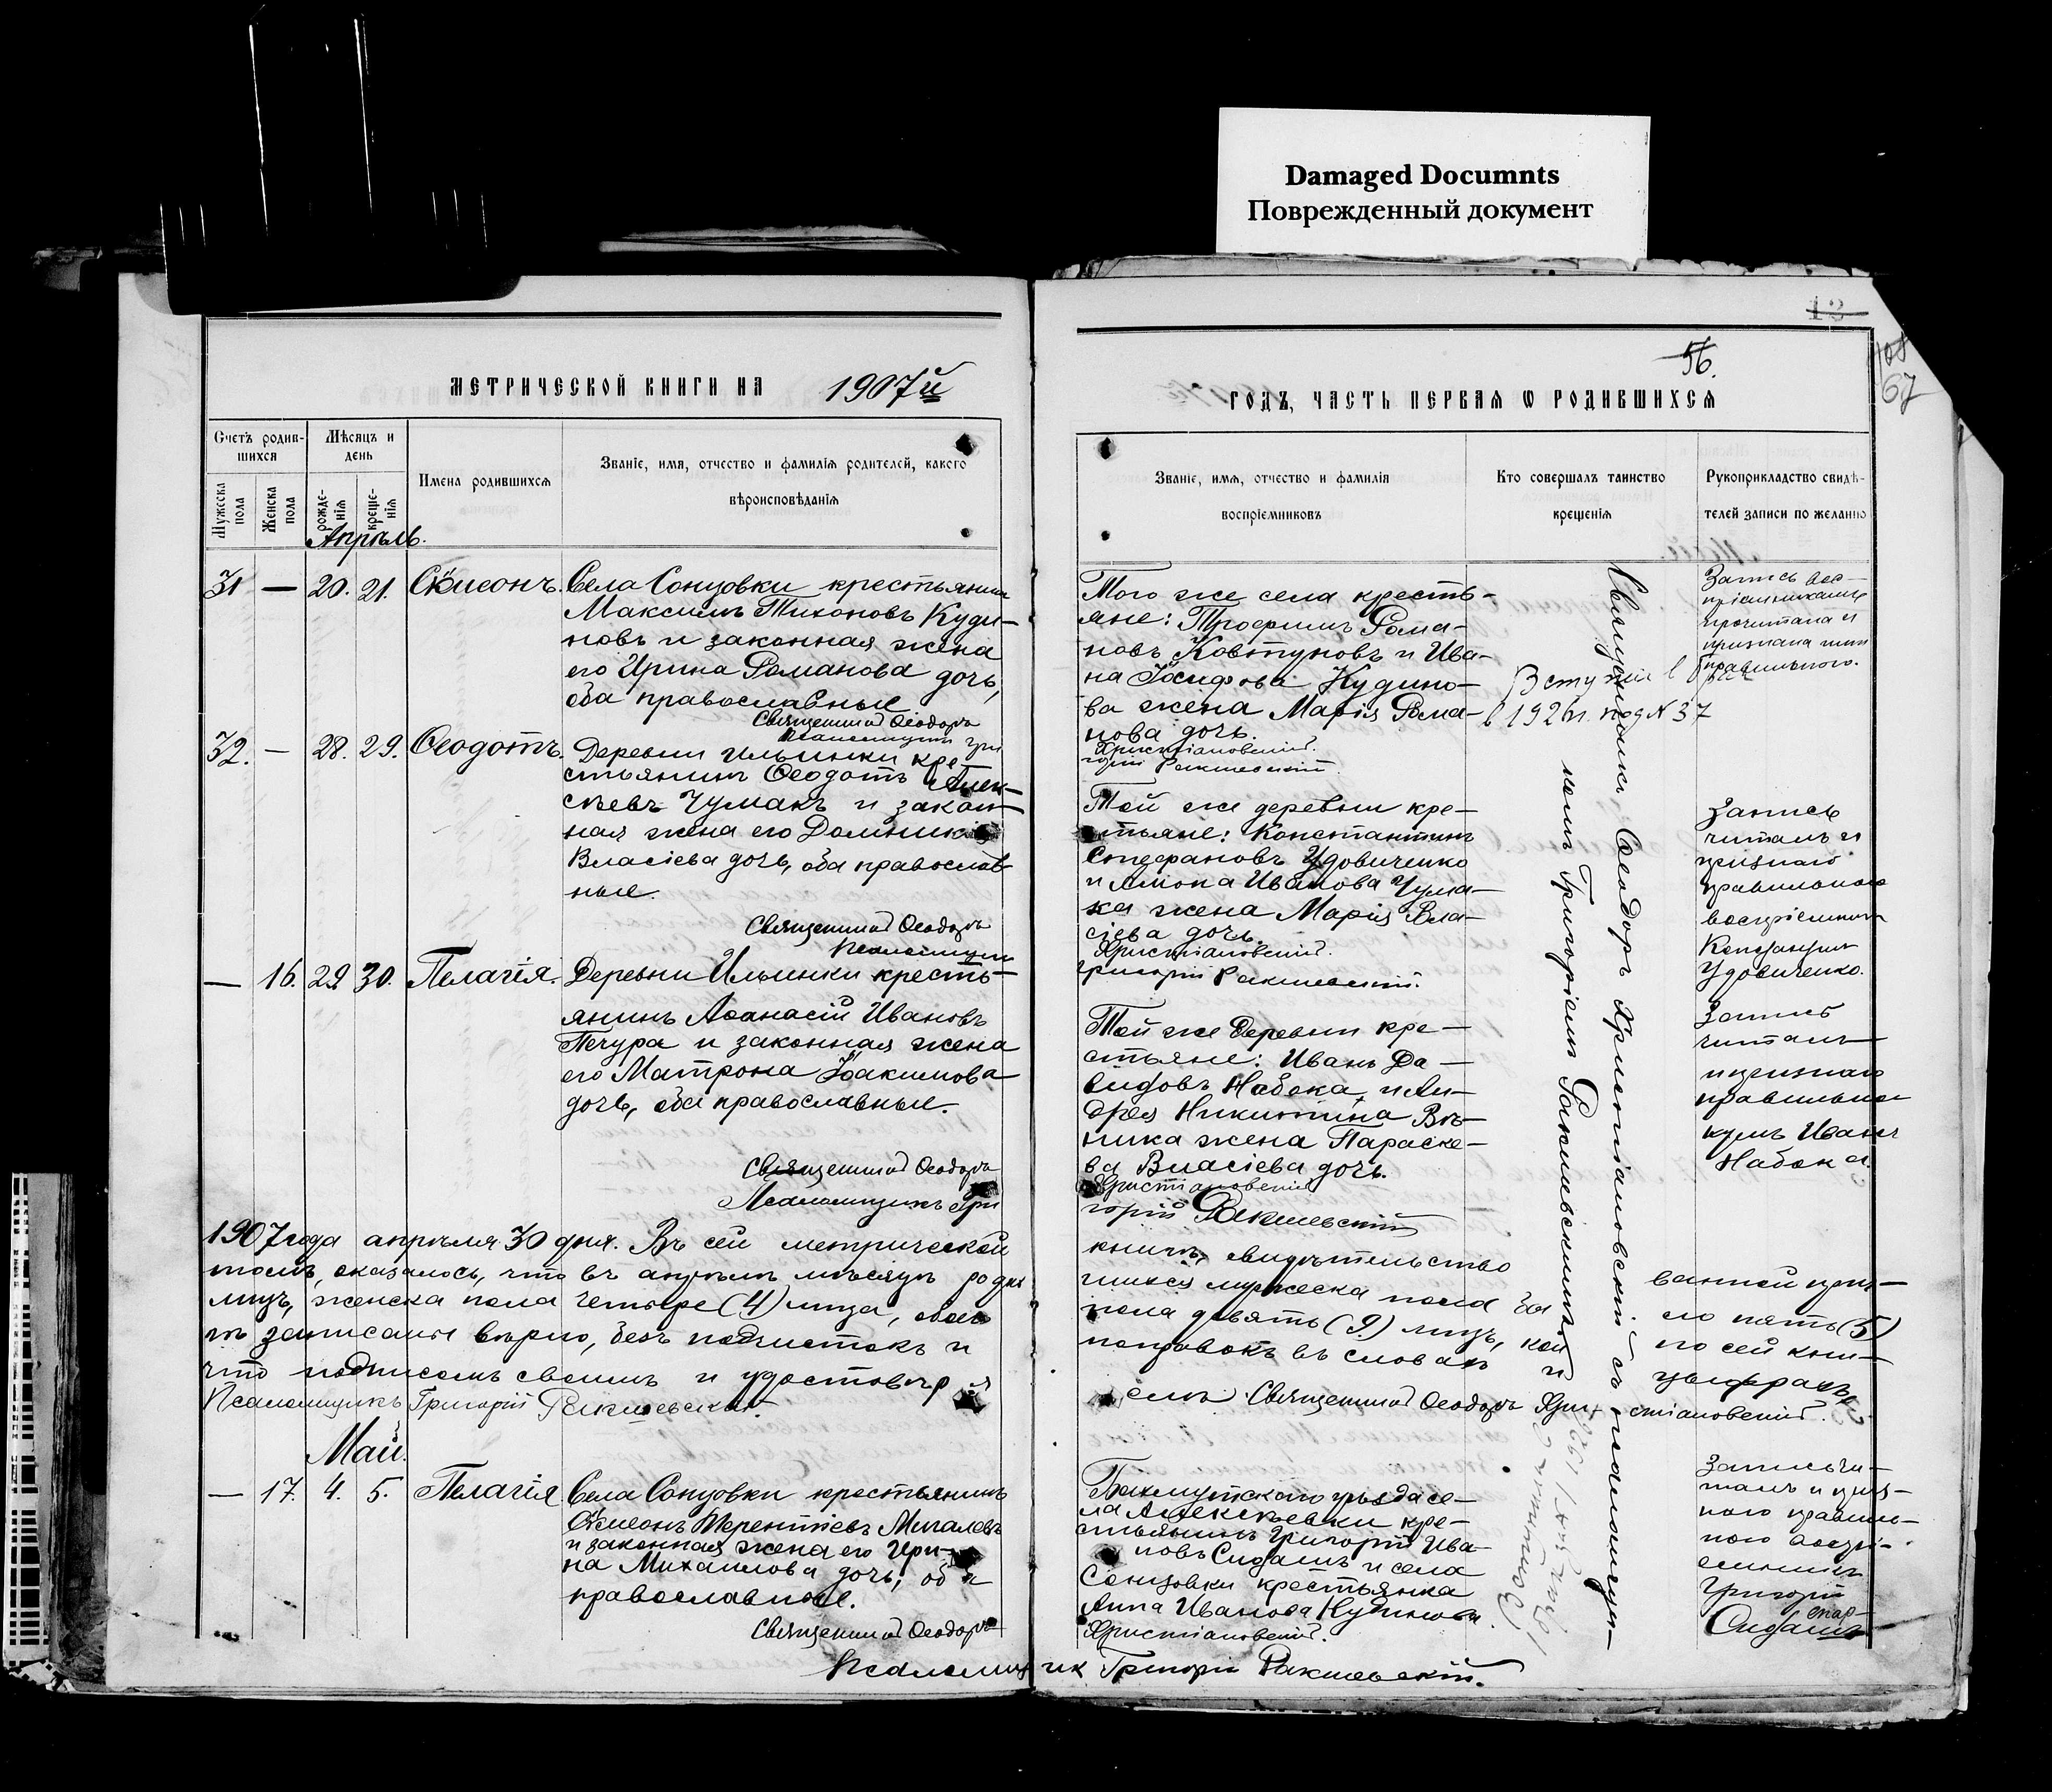 Damaged Documnts
Поврежденный документ
13
56.
108
67
МЕТРИЧЕСКОЙ КНИГИ НА 1907й
ГОДЪ, ЧАСТЬ ПЕРВАЯ Ѡ РОДИВШИХСЯ
Счетъ родив-
шихся
Мужеска пола
Женска пола
Мѣсяцъ и
день
рожде-
нія
креще-
нія
Имена родившихся
Званіе, имя, отчество и фамилія родителей, какого
вѣроисповѣданія
Званіе, имя, отчество и фамилія
воспріемниковъ
Кто совершалъ таинство
крещенія
Рукоприкладство свидѣ-
телей записи по желанію
Апрѣль.
31 — 20. 21. Сѷмеонъ.
Села Сонцовки крестьянинъ
Максимъ Тихоновъ Куди-
новъ и законная жена
его Ирина Романова дочь,
оба православные
Священникъ Ѳеодоръ
Псаломщикъ Гри
Того же села кресть-
яне: Трофимъ Рома-
новъ Ковтуновъ и Ива-
на Іосифова Кудино-
ва жена Марія Рома-
нова дочь.
Христіановскій.
горій Ракшевскій.
Вступил в брак
в 1926г. под N 37
Запись вос-
пріемниками
прочитана и
признана ими
правильною.
32. — 28. 29. Ѳеодотъ.
Деревни Ильинки кре-
стьянинъ Ѳеодотъ Алек-
сѣевъ Чумакъ и закон-
ная жена его Домникія
Власіева дочь, оба православ-
ные.
Священникъ Ѳеодоръ
Псаломщикъ
Той же деревни кре-
стьяне: Константинъ
Стефановъ Удовиченко
и Амона Иванова Чума-
ка жена Марія Вла-
сіева дочь.
Христіановскій.
Григорій Ракшевскій.
Запись
читалъ и
признаю
правильною
воспріемникъ
Констанцин
Удовиченко.
— 16. 29. 30. Пелагія.
Деревни Ильинки кресть-
янинъ Аѳанасій Ивановъ
Печура и законная жена
его Матрона Іоакимова
дочь, оба православные.
Священникъ Ѳеодоръ
Псаломщикъ Гри
Той же деревни кре-
стьяне: Иванъ Да-
видовъ Набока, и Ан-
дрея Никитина Вѣ-
ника жена Параске-
ва Власіева дочь.
Христіановскій
горій Ракшевскій
Запись
читалъ
и признаю
правильной
кумъ Иванъ
Набока.
Священникъ Ѳеодоръ Христіановскій съ псаломщи-
комъ Григоріемъ Ракшевскимъ.
1907 года апрѣля 30 дня. Въ сей метрической книгѣ, свидѣтельство ванной при-
томъ, оказалось, что въ апрѣлѣ мѣсяцѣ родившихся мужеска пола
пять (5)
лицъ, женска пола четыре (4) лица, обоего пола девять (9) лицъ, кои по сей кни-
гѣ записаны вѣрно, безъ подчистокъ и поправокъ въ словахъ и цыфрахъ,
что подписомъ своимъ и удостовѣряемъ Священникъ Ѳеодоръ Христіановскій.
Псаломщикъ Григорій Ракшевскій.
Май.
— 17. 4. 5. Пелагія
Села Сонцовки крестьянинъ
Сѷмеонъ Терентіевъ Мигалевъ
и законная жена его Ири-
на Михаилова дочь, оба
православные.
Священникъ Ѳеодоръ
Бахмутскаго уѣзда се-
ла Алексѣевки кре-
стьянинъ Григорій Ива-
новъ Сидашъ и села
Сонцовки крестьянка
Анна Иванова Кудинова.
Христіановскій.
Запись чи-
талъ и приз-
наю правиль-
ною воспрі-
емникъ
Григорій
Сидашъ
Псаломщикъ Григорій Ракшевскій.